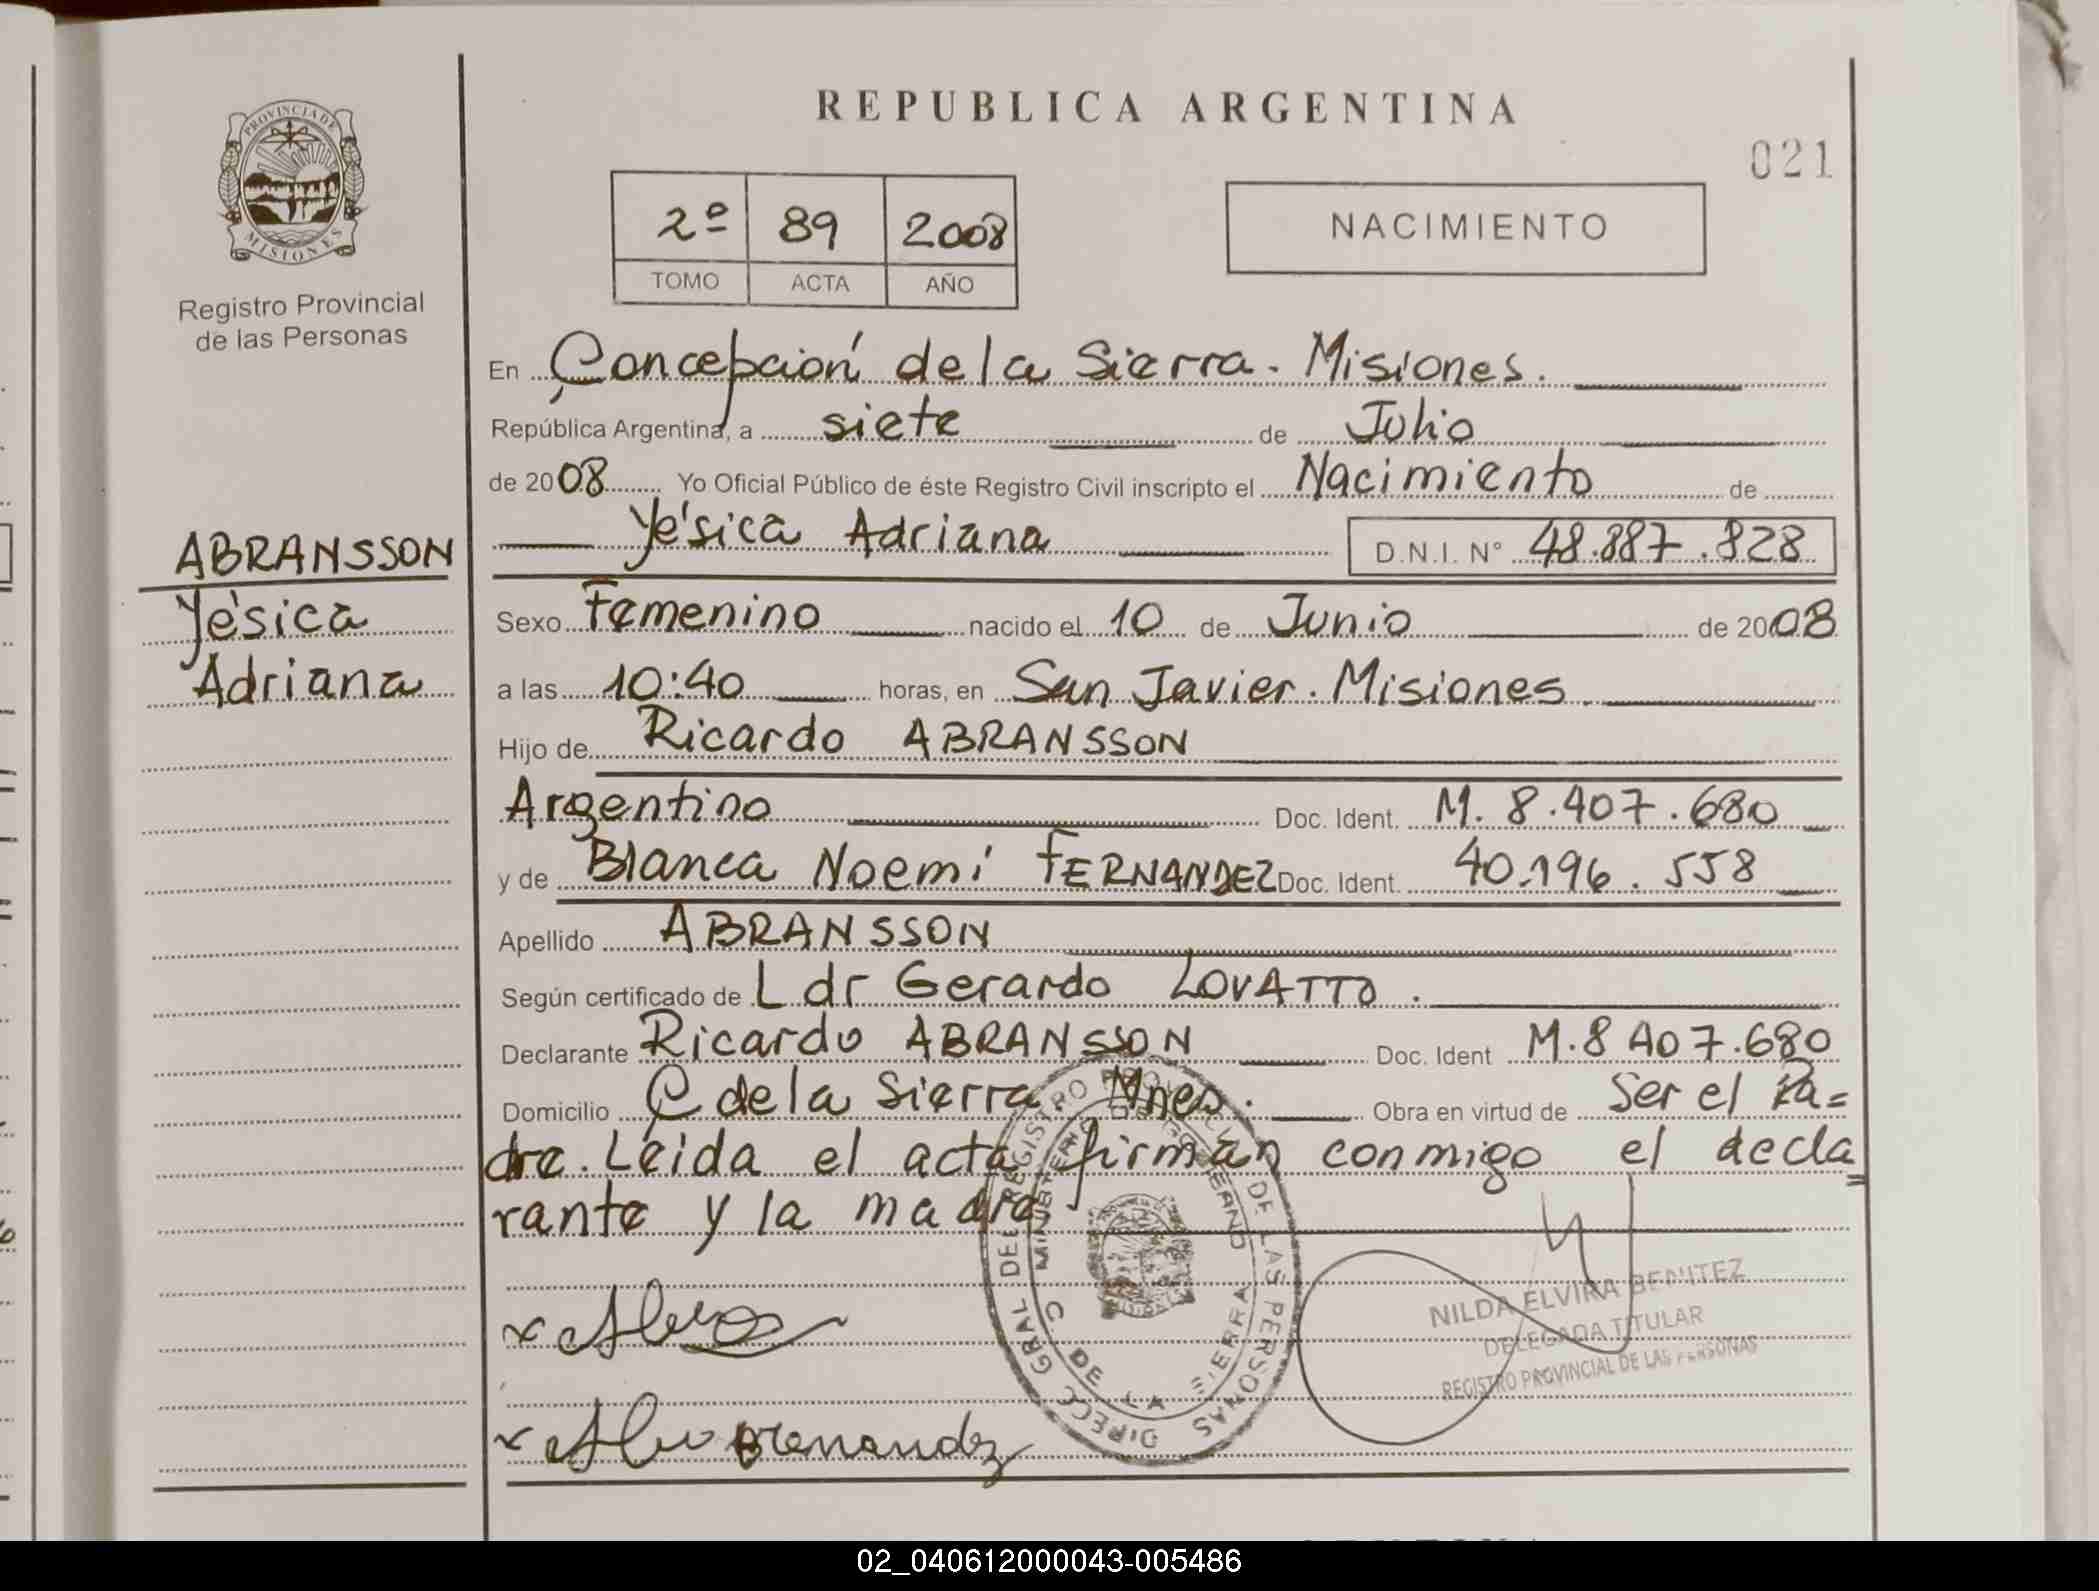 REPUBLICA ARGENTINA
021
PROVINCIA DE
MISIONES
Registro Provincial
de las Personas
2º 89 2008
TOMO ACTA AÑO
NACIMIENTO
En Concepción de la Sierra. Misiones.
República Argentina, a siete de Julio
de 2008 Yo Oficial Público de éste Registro Civil inscripto el Nacimiento de
Yésica Adriana D.N.I. Nº 48.887.828
ABRANSSON
Yésica
Adriana
Sexo Femenino nacido el 10 de Junio de 2008
a las 10:40 horas, en San Javier. Misiones
Hijo de Ricardo ABRANSSON
Argentino Doc. Ident. M. 8.407.680
y de Blanca Noemí FERNANDEZ Doc. Ident. 40.196.558
Apellido ABRANSSON
Según certificado de Ldr Gerardo LOVATTO.
Declarante Ricardo ABRANSSON Doc. Ident M.8 407.680
Domicilio C de la Sierra. Mnes. Obra en virtud de Ser el Pa=
dre. Leida el acta firman conmigo el decla=
rante y la madre
DIRECC GRAL DEL REGISTRO PROVINCIAL DE LAS PERSONAS
MINISTERIO DE GOBIERNO
C. DE LA SIERRA
NILDA ELVIRA BENITEZ
DELEGADA TITULAR
REGISTRO PROVINCIAL DE LAS PERSONAS
02_040612000043-005486